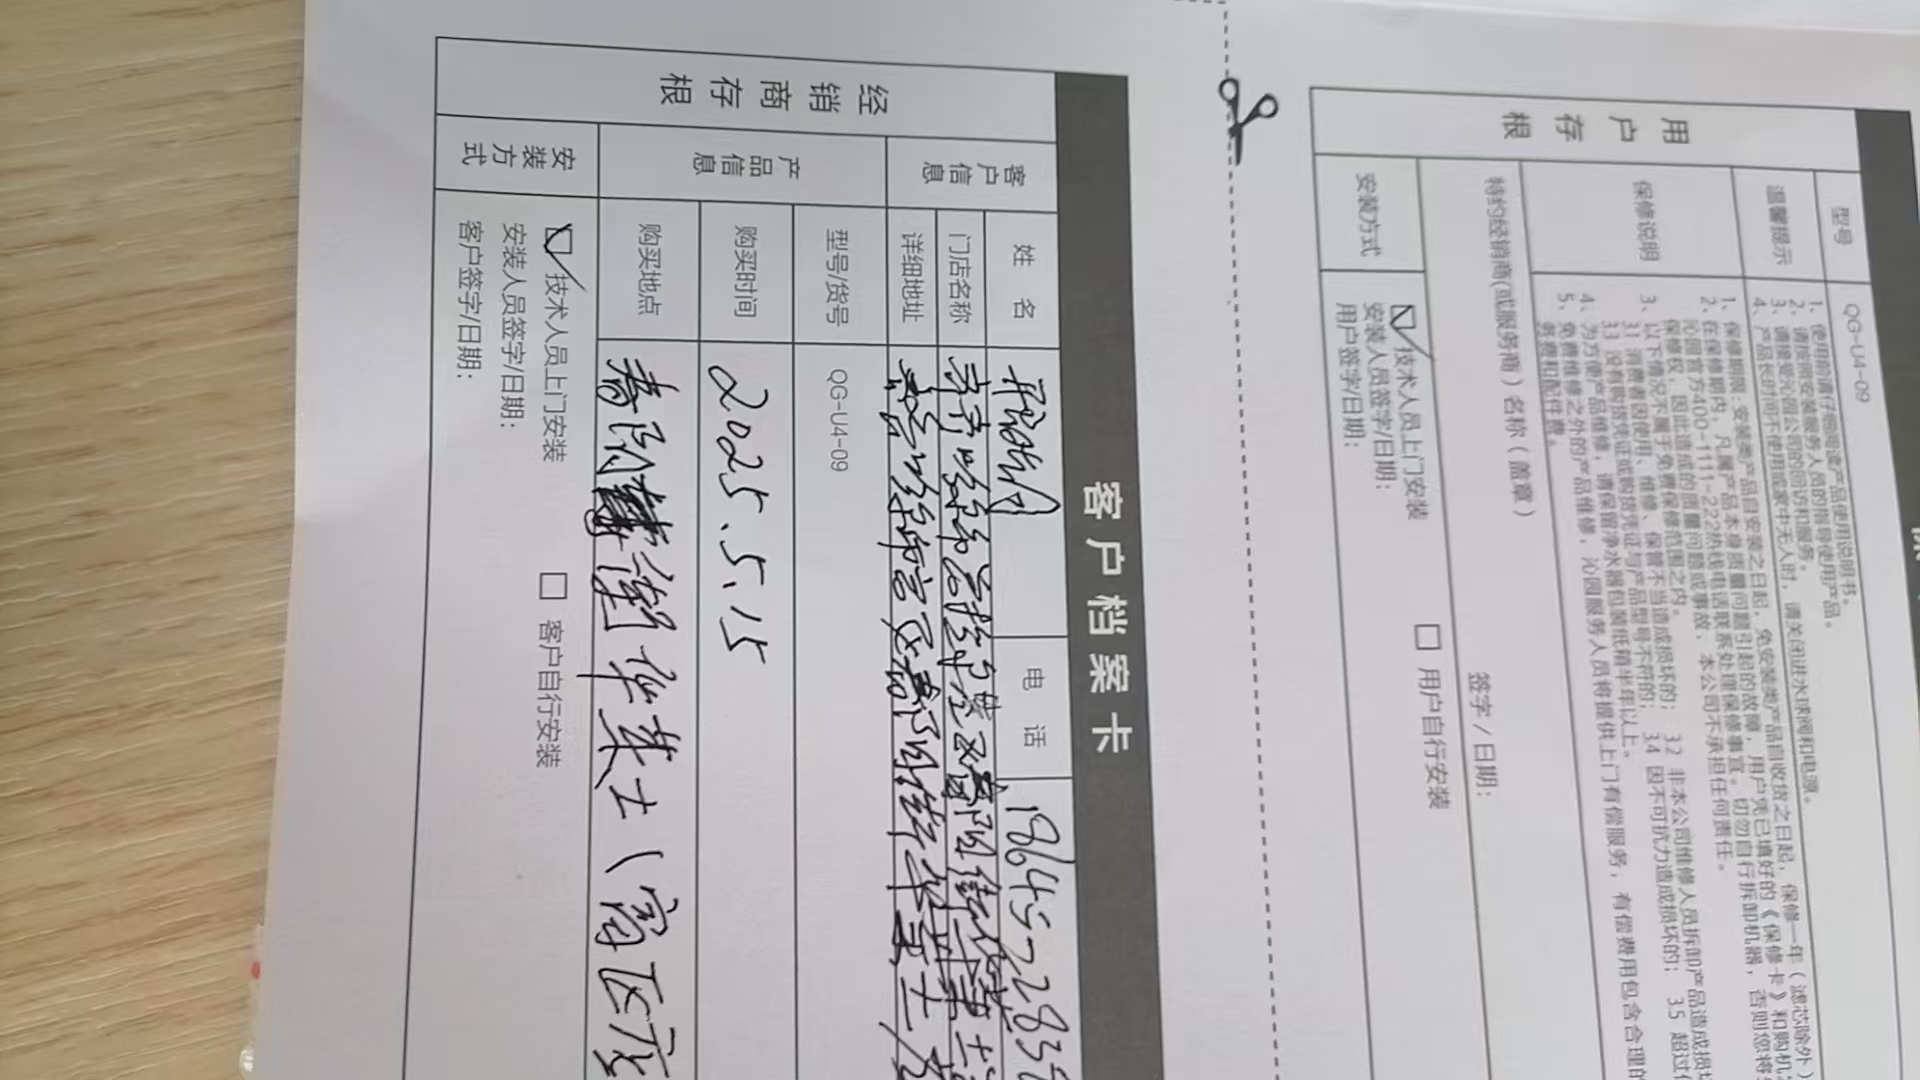 客户档案卡
经销商存根
客户信息
姓 名
电 话
1864572835
门店名称
详细地址
产品信息
型号/货号
QG-U4-09
购买时间
2025.5.15
购买地点
华莱士(富区店
安装方式
☑ 技术人员上门安装 □ 客户自行安装
安装人员签字/日期：
客户签字/日期：
用户存根
型号
QG-U4-09
温馨提示
1、使用前请仔细阅读产品使用说明书。
2、请按照安装服务人员的指导使用产品。
3、请接受沁园公司的回访和服务。
4、产品长时间不使用或家中无人时，请关闭进水球阀和电源。
保修说明
1、保修期限：安装类产品自安装之日起，免安装类产品自收货之日起，保修一年（滤芯除外）
2、在保修期内，凡属产品本身质量问题引起的故障，用户凭已填好的《保修卡》和购机
沁园官方400-1111-222热线电话联系处理保修事宜。切勿自行拆卸机器，否则您将
保修权，因此造成的质量问题或事故，本公司不承担任何责任。
3、以下情况不属于免费保修范围之内。
3.1 消费者因使用、维修、保管不当造成损坏的； 3.2 非本公司维修人员拆卸产品造成损
3.3 没有购货凭证或购货凭证与产品型号不符的； 3.4 因不可抗力造成损坏的； 3.5 超过
4、为方便产品维修，请保留净水器包装纸箱半年以上。
5、免费维修之外的产品维修，沁园服务人员将提供上门有偿服务，有偿费用包含合理的
务费和配件费。
特约经销商(或服务商）名称（盖章） 签字 / 日期：
安装方式
☑ 技术人员上门安装 □ 用户自行安装
安装人员签字/日期：
用户签字/日期：